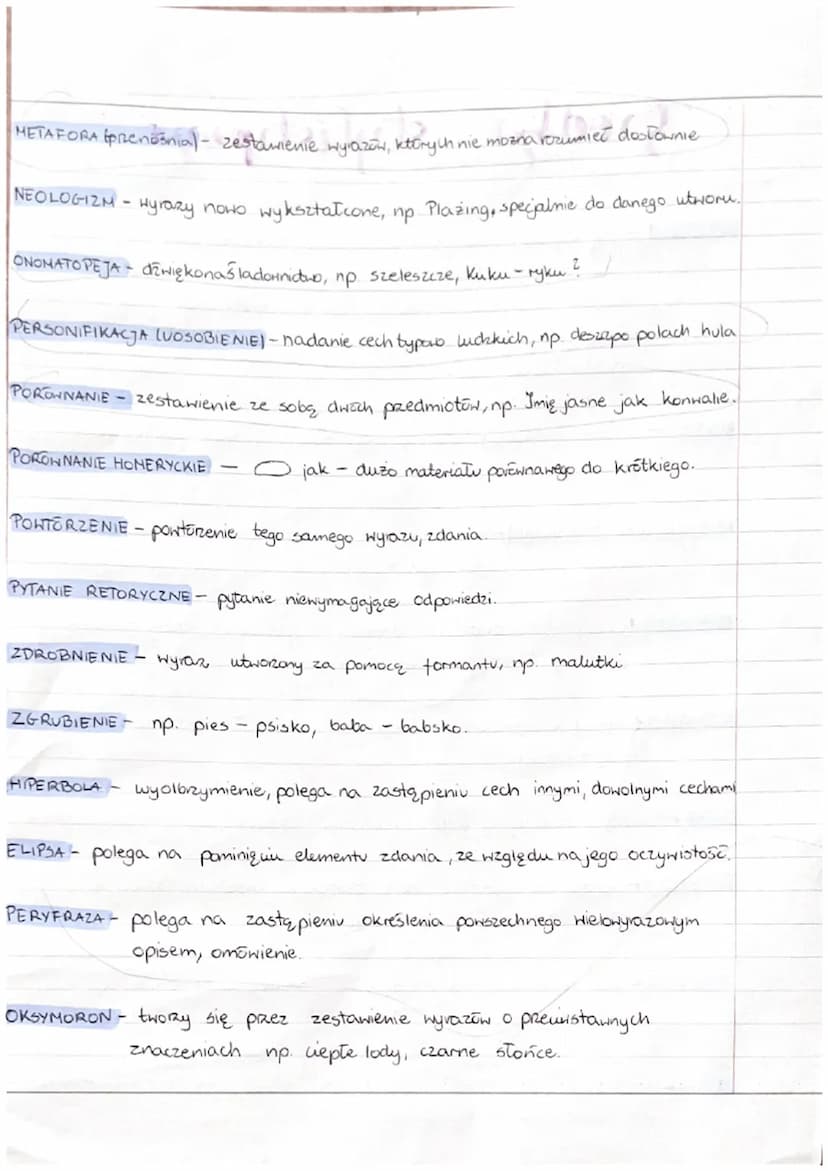 METAFORA (przenośnia) - zestawienie wyrazów, których nie można rozumieć dosłownie
NEOLOGIZM - wyrazy nowo wykształcone, np. Plażing, specjalnie do danego utworu.
ONOMATOPEJA - dźwiękonaśladownictwo, np. szeleszcze, kuku - ryku ?
PERSONIFIKACJA (UOSOBIENIE) - nadanie cech typowo ludzkich, np. deszcz po polach hula
PORÓWNANIE - zestawienie ze sobą dwóch przedmiotów, np. Imię jasne jak konwalie.
PORÓWNANIE HOMERYCKIE - jak - dużo materiału porównawego do krótkiego.
POWTÓRZENIE - powtórzenie tego samego wyrazu, zdania.
PYTANIE RETORYCZNE - pytanie niewymagające odpowiedzi.
ZDROBNIENIE - wyraz utworzony za pomocą formantu, np. malutki
ZGRUBIENIE - np. pies - psisko, baba - babsko.
HIPERBOLA - wyolbrzymienie, polega na zastąpieniu cech innymi, dowolnymi cechami
ELIPSA - polega na pominięciu elementu zdania, ze względu na jego oczywistość.
PERYFRAZA - polega na zastąpieniu określenia powszechnego wielowyrazowym
opisem, omówienie.
OKSYMORON - tworzy się przez zestawienie wyrazów o przeciwstawnych
znaczeniach np. ciepłe lody, czarne słońce.